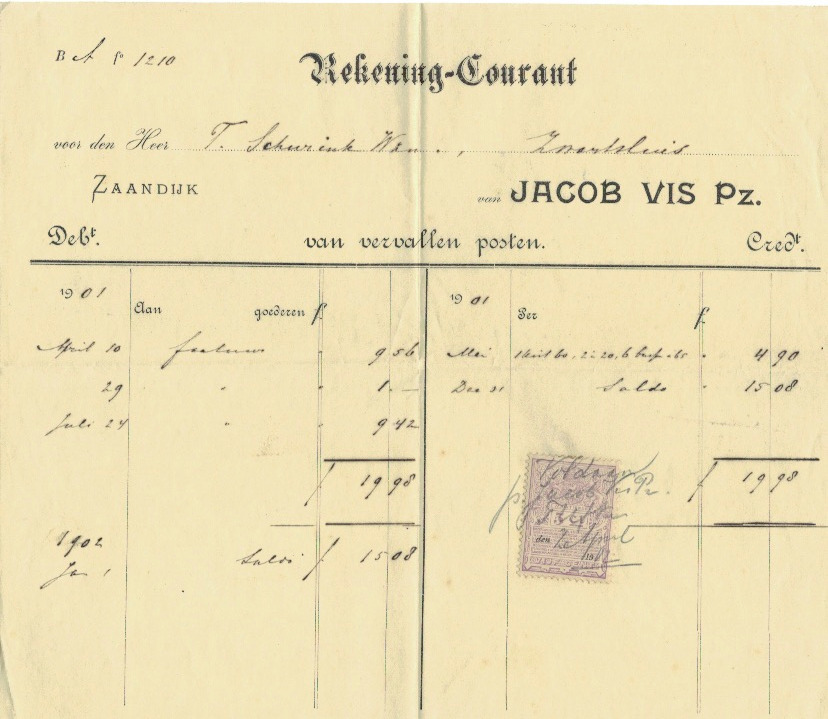 B A fo 1210
Rekening-Courant
voor den Heer T. Schurink Wzn., Zwartsluis
ZAANDIJK van JACOB VIS Pz.
Debt. van vervallen posten. Credt.
1901 Aan goederen f
April 10 factuur " 9 56
29 " " 1.—
Juli 24 " " 9 42
f 19 98
1902
Jan 1 Saldo f 15 08
1901 Per f
Mei " 4 90
Dec 31 Saldo " 15 08
f 19 98
Voldaan
p. Jacob Vis Pz.
den 2 April